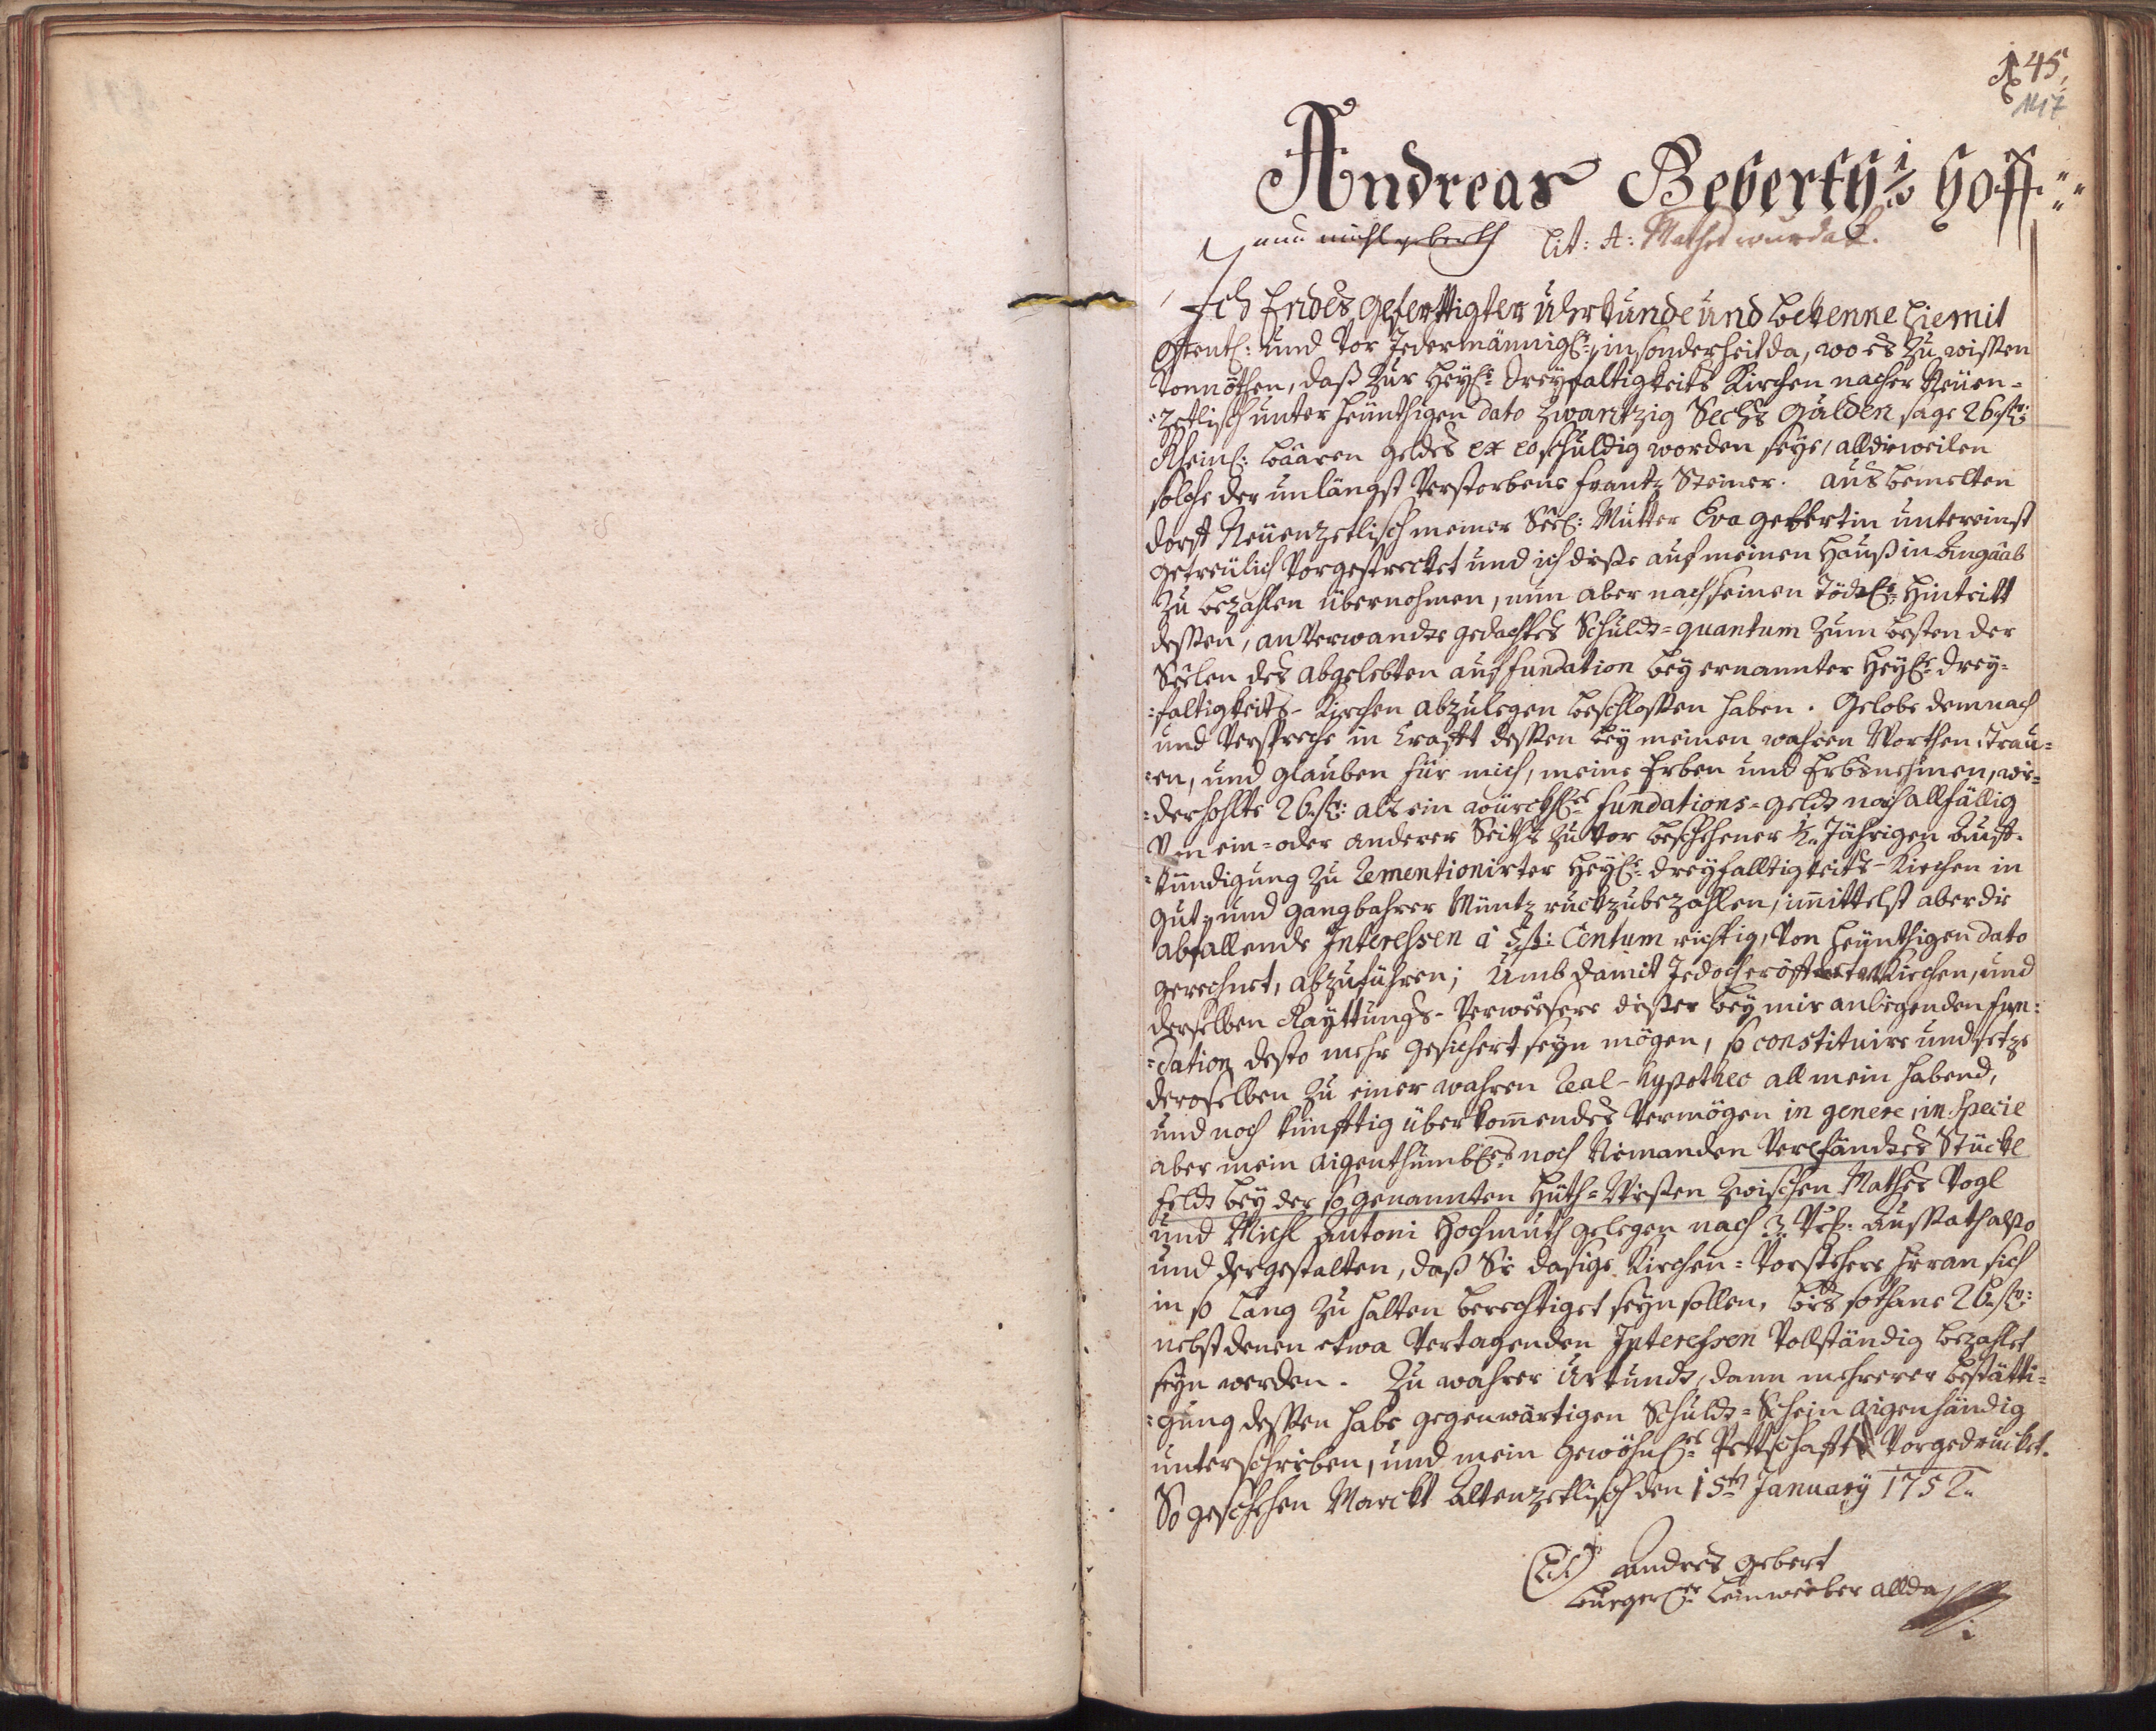 145,
147
Andreas Geberth ½ Hoff
nun Michl geberth Lit: A: Mathes wurdak.
Ich Endes gefertigter Uhrkunde und bekenne hiemit
öffentl: und Vor Jedermännigl:, insonderheit da, wo es zu wissen
Vonnöthen, daß zur Heyl: Dreyfaltigkeits Kirchen nacher Neuen-
:zetlisch unter heünthigen dato zwantzig Sechs Gulden sage 26 fl:
Rheinl: baaren geldes ex eo schuldig worden seye, alldieweilen
solche der unlängst Verstorbene Frantz Steiner. aus bemelten
dorff Neuenzetlisch meiner Seel: Mutter Eva gebertin untereinst
getreülich Vorgestrecket und ich diese auf meinen Hauß in
zu bezahlen übernohmen, nun aber nach seinen Tödtl: Hintritt
dessen, anverwandte gedachtes Schuld-quantum zum besten der
Seelen des abgelebten auf fundation bey ernannter Heyl: Drey-
:faltigkeits-Kirchen abzulegen beschlossen haben. Gelobe demnach
und Verspreche in Krafft dessen bey meinen wahren Worthen, trau-
:en, und glauben für mich, meine Erben und Erbsnehmen, wie-
:derhohlte 26 fl: als ein würckl: fundations-geld nach allfällig
Von ein-oder anderer Seiths zu vor beschehener ½ Jährigen Auff-
:kündigung zu rementionirter Heyl: Dreyfalltigkeits-Kirchen in
gut-und gangbahrer Müntz ruckzubezahlen, immittelst aber die
abfallende Interessen â 5 p: Centum richtig, Von heünthigen dato
gerechnet, abzuführen; Umb damit Jedoch eröffterter Kirchen, und
derselben Rayttungs-Verweesere dieser bey mir anligenden fun:
:dation desto mehr gesichert seyn mögen, so constituire und setze
deroselben zu einer wahren Real-hypothec all mein habend,
und noch künfftig überkommendes Vermögen in genere, in specie
aber mein aigenthumbl: noch Niemanden Verpfändtes Stückl
Feld bey der so genannten Huth-Wiesen zwischen Mathes Vogl
und Michl Antoni Hochmuth gelegen nach 3 Aussath also
und dergestalten, daß Sie dasige Kirchen-Vorstehere hieran sich
in so lang zu halten berechtiget seyn sollen, bis sothane 26 fl:
nebst denen etwa Vertagenden Interessen Vollständig bezahlet
seyn werden. Zu wahrer Urkund, dann mehrerer bestätti-
:gung dessen habe gegenwärtigen Schuld-Schein aigenhändig
unterschrieben, und mein gewöhnl: Pettschafft Vorgedrucket.
So geschehen Marckt Altenzetlisch den 15ten January 1752.
(L.S.) Andres gebert
burgerl: Leinweeber allda